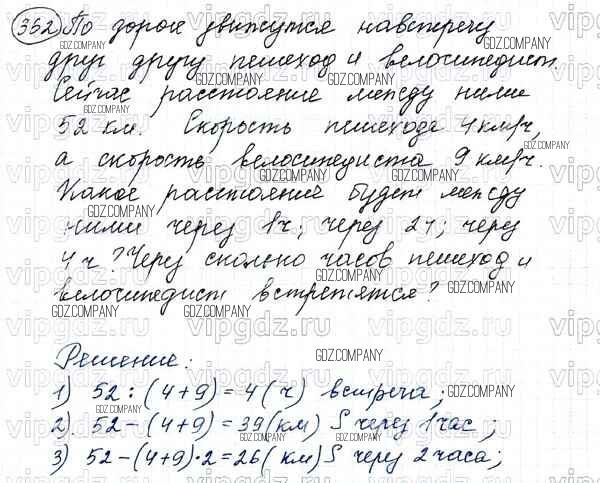 352 По дороге движутся навстречу
друг другу пешеход и велосипедист.
Сейчас расстояние между ними
52 км. Скорость пешехода 4 км/ч,
а скорость велосипедиста 9 км/ч.
Какое расстояние будет между
ними через 1ч; через 2ч; через
4ч? Через сколько часов пешеход и
велосипедист встретятся?
Решение:
1) 52 : (4+9) = 4 (ч) встреча;
2) 52 - (4+9) = 39 (км) S через 1 час;
3) 52 - (4+9)·2 = 26 (км) S через 2 часа;